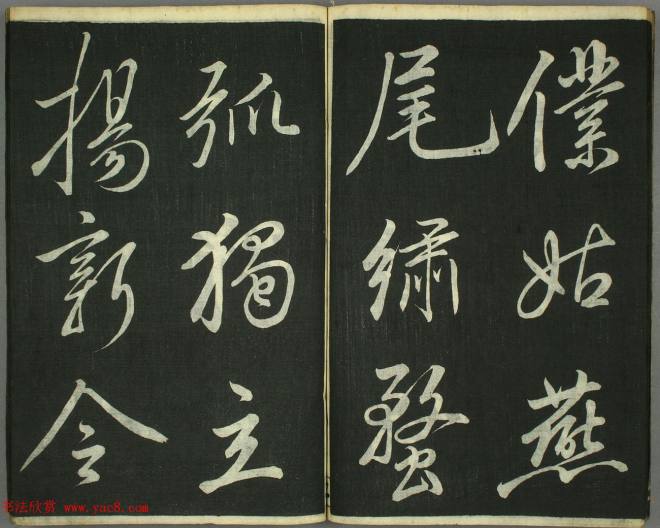 僕姑燕
尾繡蝥
弧獨立
揚新令
书法欣赏 www.yac8.com